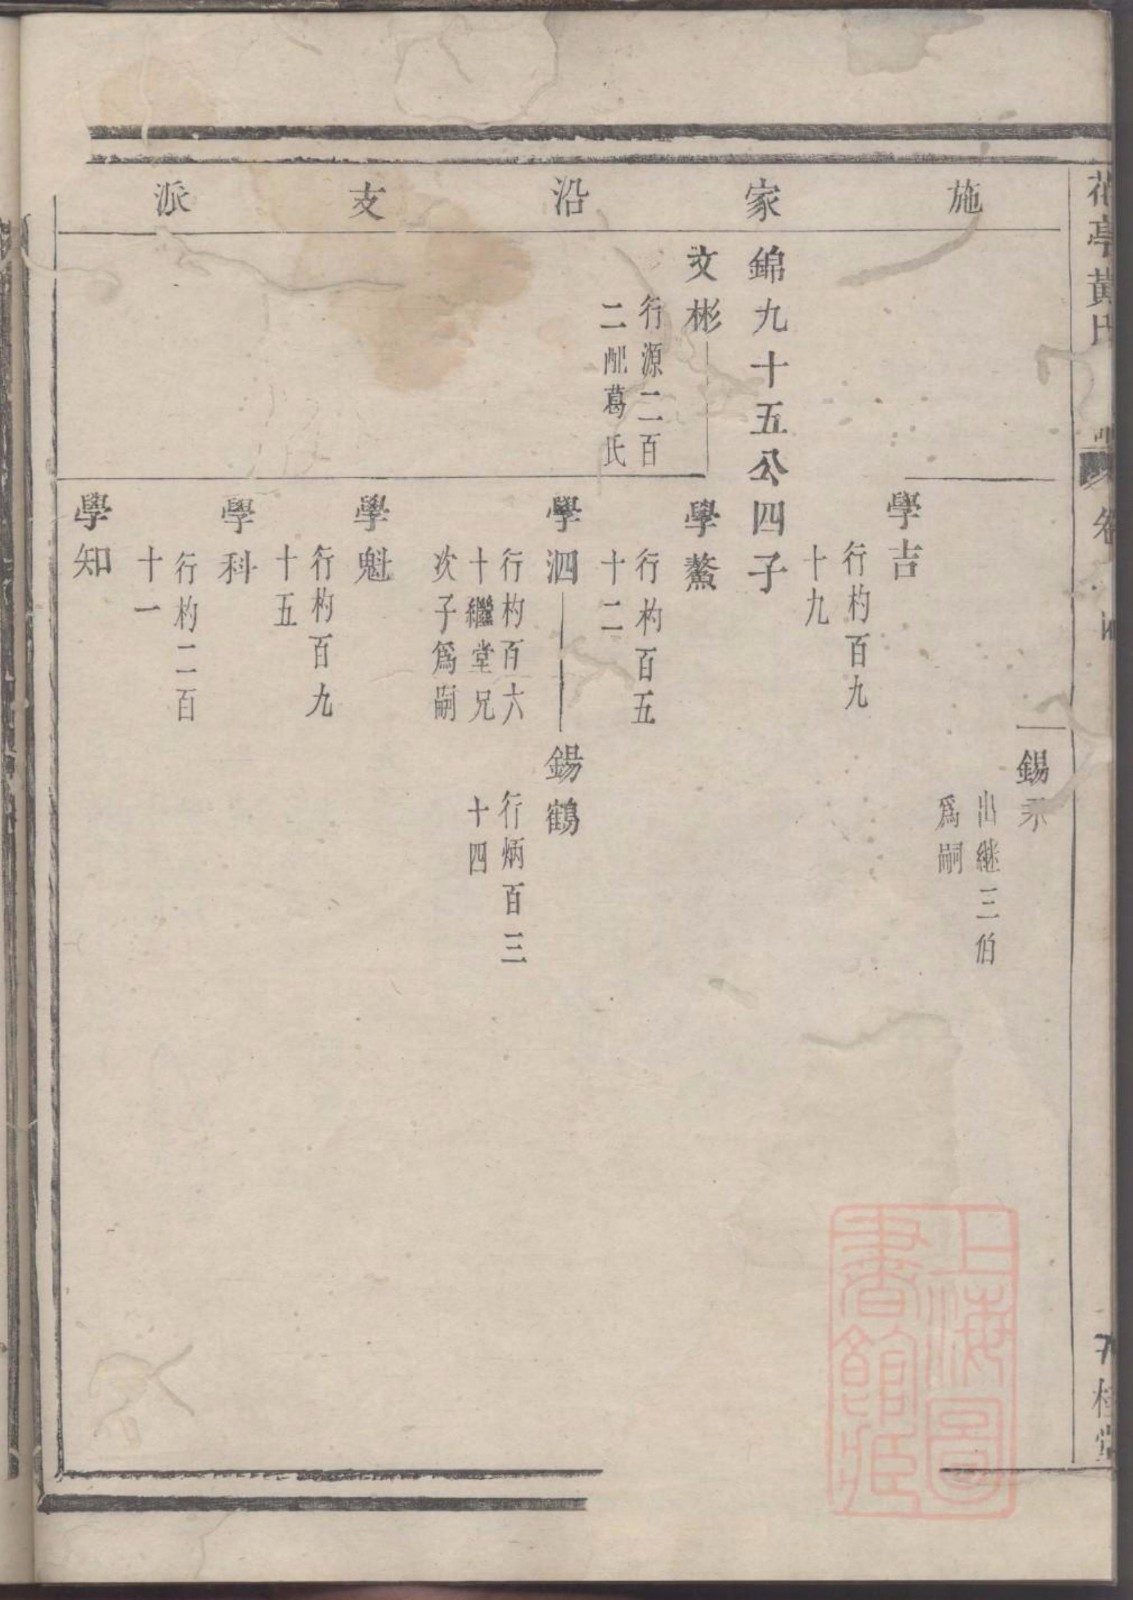 花亭黃氏
桂堂
施家沿支派
錫
出継三伯
為嗣
學吉
行杓百九
十九
錦九十五公四子
文彬
行源二百
二配葛氏
學鰲
行杓百五
十二
學泗
行杓百六
十繼堂兄
次子為嗣
錫鶴
行炳百三
十四
學魁
行杓百九
十五
學科
行杓二百
十一
學知
上海圖
書館藏